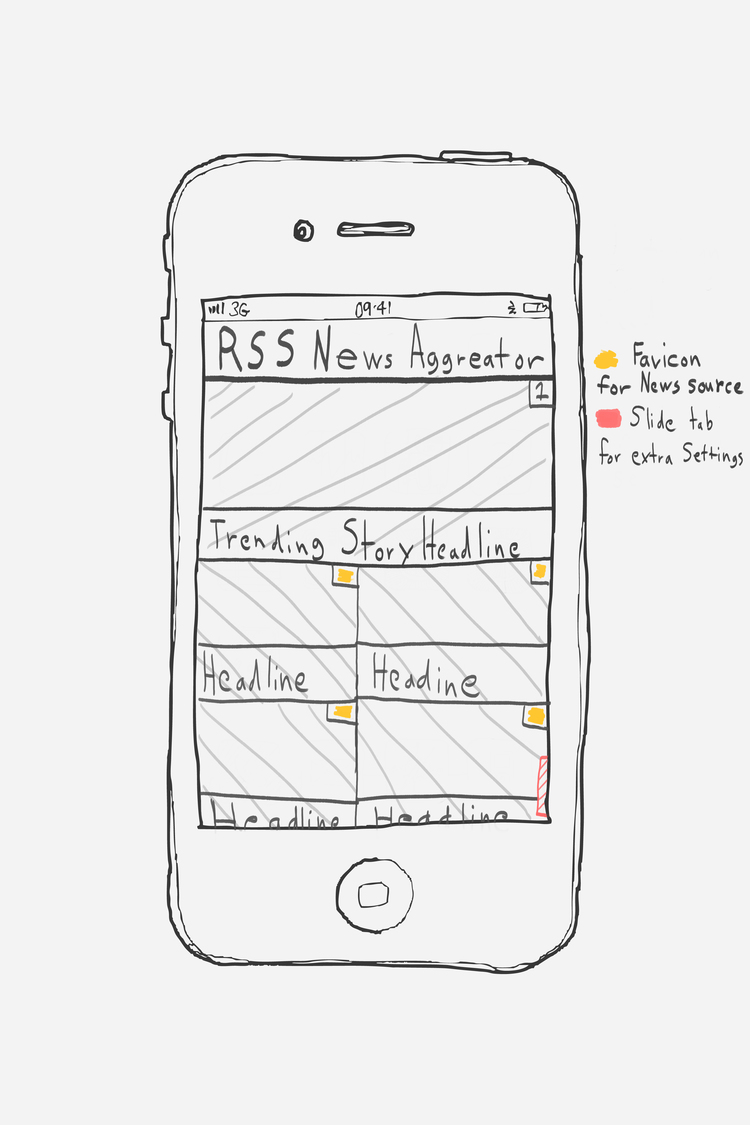 3G 09:41
RSS News Aggreator
1
Trending Story Headline
Headline Headine
Headline Headline
Favicon
for News source
Slide tab
for extra Settings